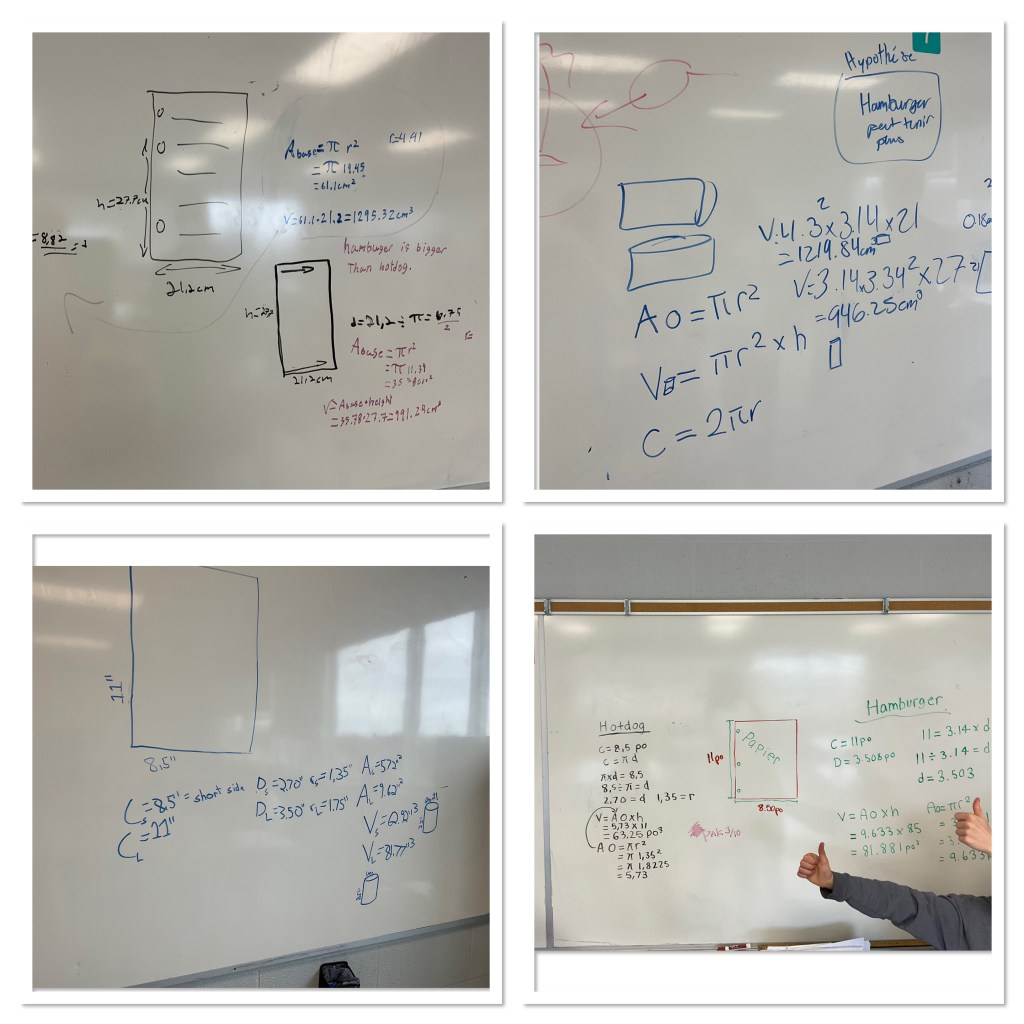 Abase=π r²
r=4.41
=π 19.45
=61.1cm²
V=61.1·21.2=1295.32cm³
h=27.7cm
=8,82=d
21,2cm
hamburger is bigger
Than hotdog.
d=21,2÷π=6.75
2
21.2cm
Abase=πr²
=π 11.39
V=Abase·height
=35.78·27.7=991.29cm³
Hypothèse
Hamburger
peut tenir
plus
V:4.3²x3.14x21
=1219.84cm³
V=3.14x3.34²x27
=946.25cm³
A O=πr²
V=πr²xh
C=2πr
11"
8.5"
Cs=8.5" = short side
CL=11"
Ds=2.70" rs=1,35"
DL=3.50" rL=1.75"
As=5.72"²
AL=9.62"²
VL=81.77"³
Hotdog
C=8,5 po
C=πd
πxd=8,5
8,5÷π=d
2.70=d 1,35=r
V=AOxh
=5,73x11
=63.25 po³
AO=πr²
=π 1,35²
=π 1,8225
=5,73
11po
Papier
8.50po
Hamburger
C=11po
D=3.508po
11=3.14xd
11÷3.14=d
d=3.503
V=AOxh
=9.633x85
=81.881po³
Ao=πr²
=3.
=9.633